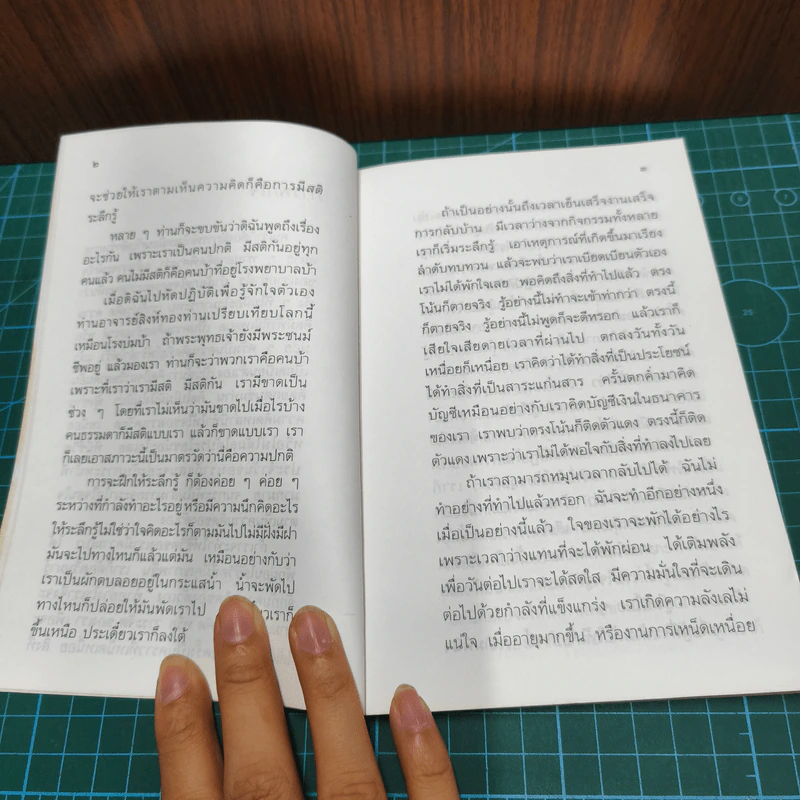 ๒
จะช่วยให้เราตามเห็นความคิดก็คือการมีสติ
ระลึกรู้
หลาย ๆ ท่านก็จะขบขันว่าดิฉันพูดถึงเรื่อง
อะไรกัน เพราะเราเป็นคนปกติ มีสติกันอยู่ทุก
คนแล้ว คนไม่มีสติก็คือคนบ้าที่อยู่โรงพยาบาลบ้า
เมื่อดิฉันไปหัดปฏิบัติเพื่อรู้จักใจตัวเอง
ท่านอาจารย์สิงห์ทองท่านเปรียบเทียบโลกนี้
เหมือนโรงบ่มบ้า ถ้าพระพุทธเจ้ายังมีพระชนม์
ชีพอยู่ แล้วมองเรา ท่านก็จะว่าพวกเราคือคนบ้า
เพราะที่เราว่าเรามีสติ มีสติกัน เรามีขาดเป็น
ช่วง ๆ โดยที่เราไม่เห็นว่ามันขาดไปเมื่อไรบ้าง
คนธรรมดาก็มีสติแบบเรา แล้วก็ขาดแบบเรา เรา
ก็เลยเอาสภาวะนี้เป็นมาตรวัดว่านี่คือความปกติ
การจะฝึกให้ระลึกรู้ ก็ต้องค่อย ๆ ค่อย ๆ
ระหว่างที่กำลังทำอะไรอยู่ หรือมีความนึกคิดอะไร
ให้ระลึกรู้ไม่ใช่ว่าใจคิดอะไรก็ตามมันไปไม่มีฝั่งมีฝา
มันจะไปทางไหนก็แล้วแต่มัน เหมือนอย่างกับว่า
เราเป็นผักตบลอยอยู่ในกระแสน้ำ น้ำจะพัดไป
ทางไหนก็ปล่อยให้มันพัดเราไป ยวเราก็
ขึ้นเหนือ ประเดี๋ยวเราก็ลงใต้
๓
ถ้าเป็นอย่างนั้นถึงเวลาเย็นเสร็จงานเสร็จ
การกลับบ้าน มีเวลาว่างจากกิจกรรมทั้งหลาย
เราก็เริ่มระลึกรู้ เอาเหตุการณ์ที่เกิดขึ้นมาเรียง
ลำดับทบทวน แล้วจะพบว่าเราเบียดเบียนตัวเอง
เราไม่ได้พักใจเลย พอคิดถึงสิ่งที่ทำไปแล้ว ตรง
โน้นก็ตายจริง รู้อย่างนี้ไม่ทำจะเข้าท่ากว่า ตรงนี้
ก็ตายจริง รู้อย่างนี้ไม่พูดก็จะดีหรอก แล้วเราก็
เสียใจเสียดายเวลาที่ผ่านไป ตกลงวันทั้งวัน
เหนื่อยก็เหนื่อย เราคิดว่าได้ทำสิ่งที่เป็นประโยชน์
ได้ทำสิ่งที่เป็นสาระแก่นสาร ครั้นตกค่ำมาคิด
บัญชีเหมือนอย่างกับเราคิดบัญชีเงินในธนาคาร
ของเรา เราพบว่าตรงโน้นก็ติดตัวแดง ตรงนี้ก็ติด
ตัวแดง เพราะว่าเราไม่ได้พอใจกับสิ่งที่ทำลงไปเลย
ถ้าเราสามารถหมุนเวลากลับไปได้ ฉันไม่
ทำอย่างที่ทำไปแล้วหรอก ฉันจะทำอีกอย่างหนึ่ง
เมื่อเป็นอย่างนี้แล้ว ใจของเราจะพักได้อย่างไร
เพราะเวลาว่างแทนที่จะได้พักผ่อน ได้เติมพลัง
เพื่อวันต่อไปเราจะได้สดใส มีความมั่นใจที่จะเดิน
ต่อไปด้วยกำลังที่แข็งแกร่ง เราเกิดความลังเลไม่
แน่ใจ เมื่ออายุมากขึ้น หรืองานการเหน็ดเหนื่อย
25